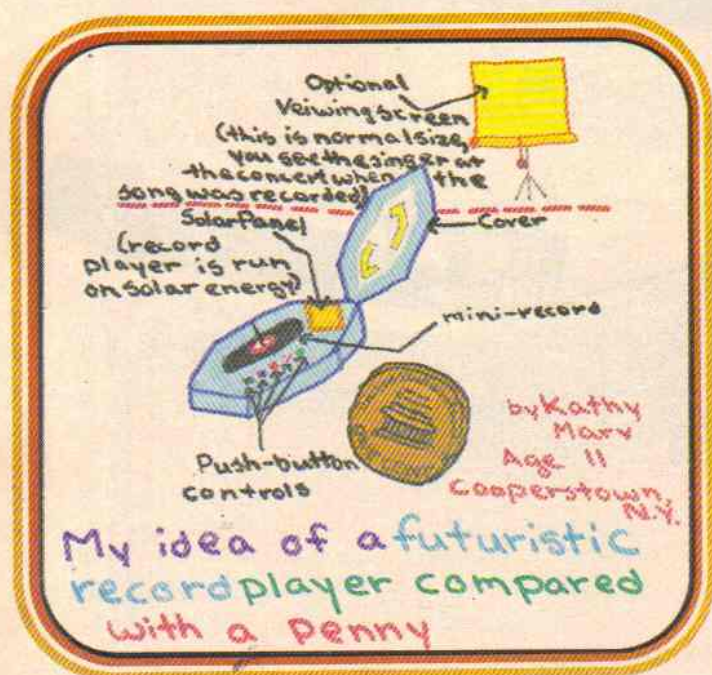 Optional
Veiwing screen
(this is normal size,
you see the singer at
the concert when the
song was recorded)
Solar Panel
(record
player is run
on solar energy)
Cover
mini-record
Push-button
controls
by Kathy
Marv
Age 11
Cooperstown,
N.Y.
My idea of a futuristic
record player compared
with a penny